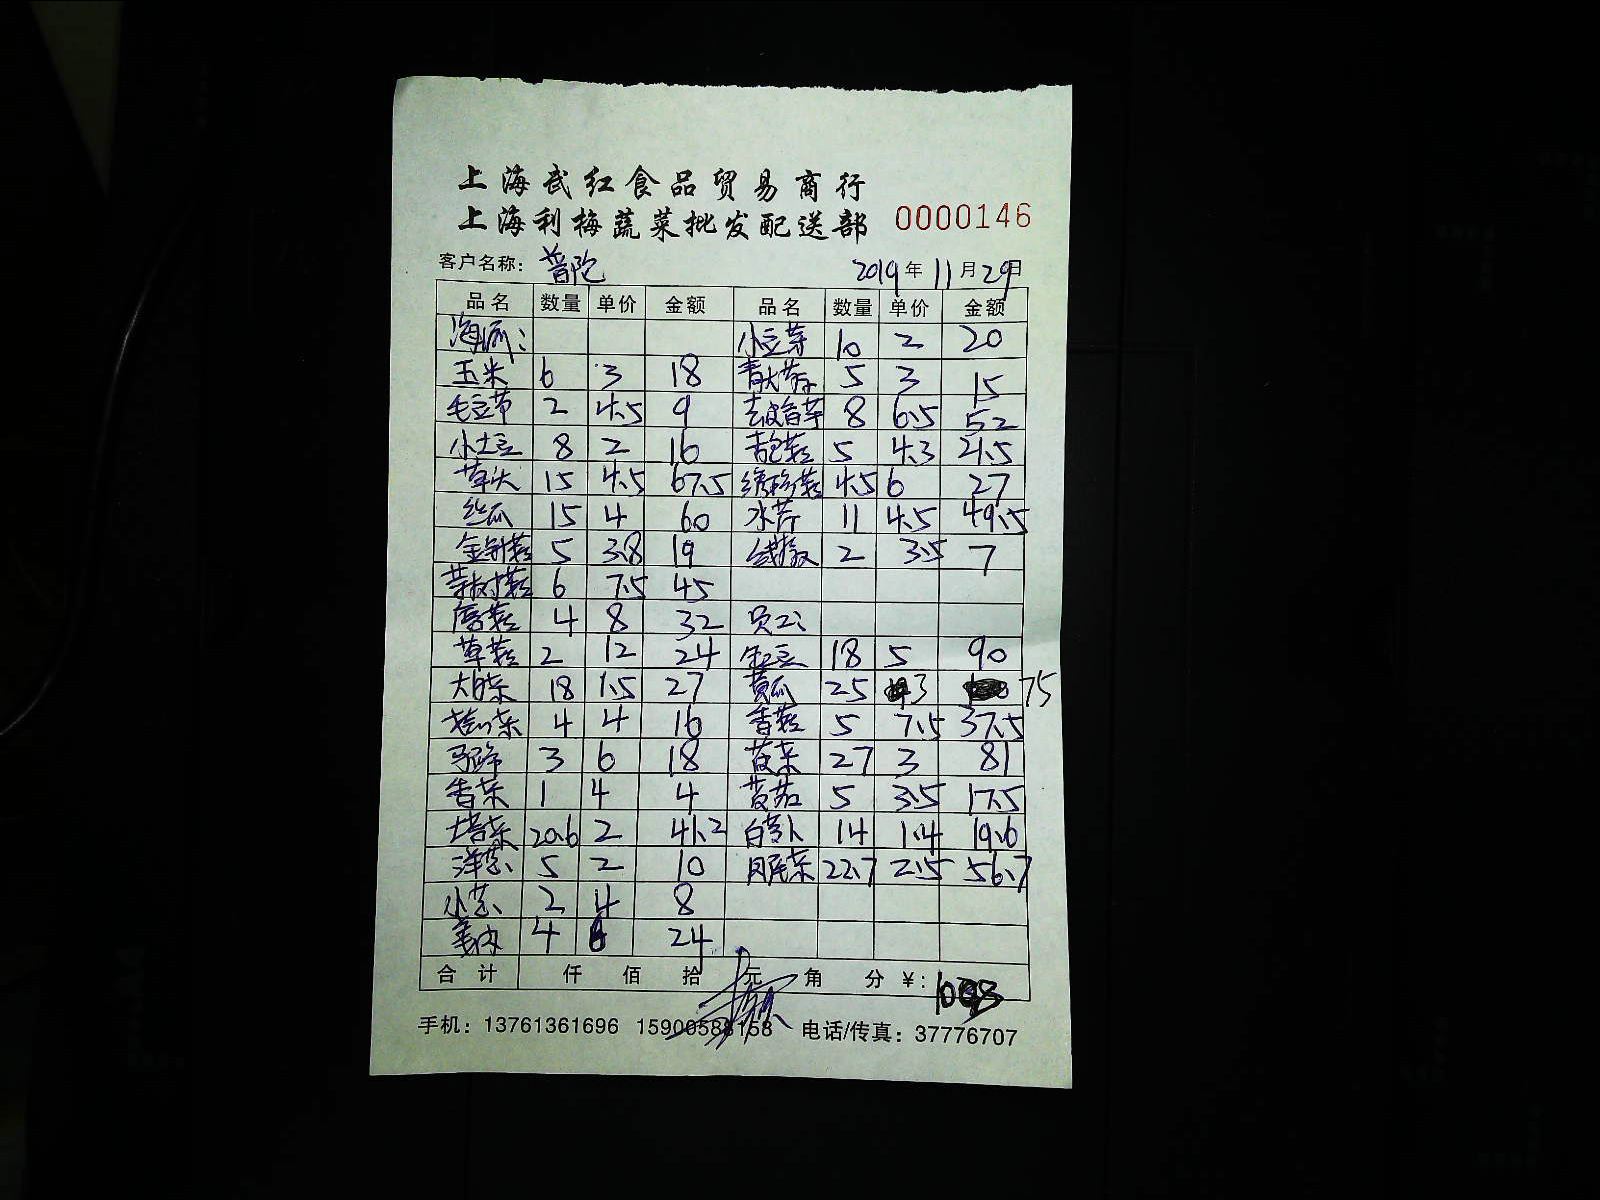 上海武红食品贸易商行
上海利梅蔬菜批发配送部 0000146
客户名称: 普陀 2019年11月29日
品名 数量 单价 金额 品名 数量 单价 金额
小豆芽 10 2 20
玉米 6 3 18 5 3 15
毛豆节 2 4.5 9 8 6.5 52
小土豆 8 2 16 5 4.3 21.5
草头 15 4.5 67.5 4.5 6 27
丝瓜 15 4 60 水芹 11 4.5 49.5
5 3.8 19 2 3.5 7
6 7.5 45
4 8 32 员工:
草菇 2 12 24 18 5 90
大白菜 18 1.5 27 黄瓜 25 3 75
4 4 16 香菇 5 7.5 37.5
马蹄 3 6 18 27 3 81
香菜 1 4 4 5 3.5 17.5
塔菜 20.6 2 41.2 白萝卜 14 1.4 19.6
洋葱 5 2 10 22.7 2.5 56.7
小葱 2 4 8
4 6 24
合计 仟 佰 拾 元 角 分 ¥:
手机: 13761361696 15900588158 电话/传真: 37776707